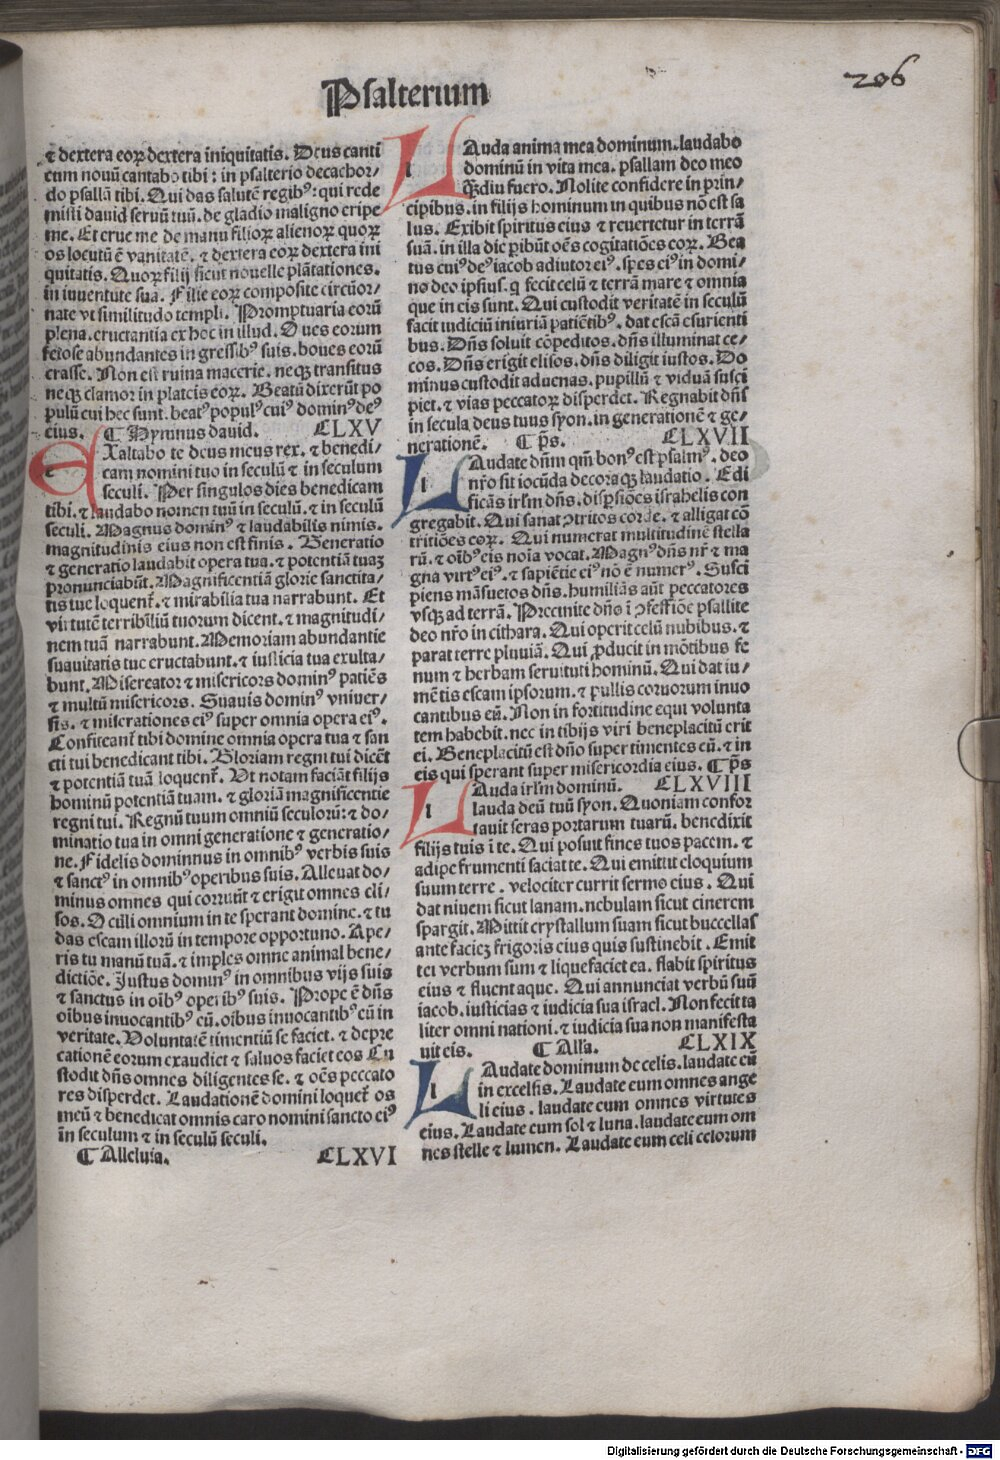 Psalterium
206
⁊ dextera eoꝝ dextera iniquitatis. Deus canti
cum nouū cantabo tibi: in psalterio decachor/
do psallā tibi. Qui das salutē regibꝰ: qui rede
misti dauid seruū tuū. de gladio maligno eripe
me. Et erue me de manu filioꝝ alienoꝝ quoꝝ
os locutū ē vanitatē. ⁊ dextera eoꝝ dextera ini
quitatis. Quoꝝ filij sicut nouelle plātationes.
in iuuentute sua. Filie eoꝝ composite circūor/
nate vt similitudo templi. Promptuaria eorū
plena. eructantia ex hoc in illud. Oues eorum
fetose abundantes in gressibꝰ suis. boues eorū
crasse. Non est ruina macerie. neqꝫ transitus
neqꝫ clamor in plateis eoꝝ. Beatū dixerūt po
pulū cui hec sunt. beatꝰ populꝰ cuiꝰ dominꝰ deꝰ
eius. ¶ Hymnus dauid. CLXV
EXaltabo te deus meus rex. ⁊ benedi/
cam nomini tuo in seculū ⁊ in seculum
seculi. Per singulos dies benedicam
tibi. ⁊ laudabo nomen tuū in seculū. ⁊ in seculū
seculi. Magnus dominꝰ ⁊ laudabilis nimis.
magnitudinis eius non est finis. Generatio
⁊ generatio laudabit opera tua. ⁊ potentiā tuaꝫ
pronunciabūt. Magnificentiā glorie sanctita/
tis tue loquent̄. ⁊ mirabilia tua narrabunt. Et
virtutē terribiliū tuorum dicent. ⁊ magnitudi/
nem tuā narrabunt. Memoriam abundantie
suauitatis tue eructabunt. ⁊ iusticia tua exulta/
bunt. Misereator ⁊ misericors dominꝰ patiēs
⁊ multū misericors. Suauis dominꝰ vniuer/
sis. ⁊ miserationes eiꝰ super omnia opera eiꝰ.
Confiteant̄ tibi domine omnia opera tua ⁊ san
cti tui benedicant tibi. Gloriam regni tui dicēt
⁊ potentiā tuā loquent̄. Vt notam faciāt filijs
hominū potentiā tuam. ⁊ gloriā magnificentie
regni tui. Regnū tuum omniū seculorū: ⁊ do/
minatio tua in omni generatione ⁊ generatio/
ne. Fidelis dominnus in omnibꝰ verbis suis
⁊ sanctꝰ in omnibꝰ operibus suis. Alleuat do/
minus omnes qui corruūt ⁊ erigit omnes eli/
sos. Oculi omnium in te sperant domine. ⁊ tu
das escam illorū in tempore opportuno. Ape/
ris tu manū tuā. ⁊ imples omne animal bene/
dictiōe. Justus dominꝰ in omnibus vijs suis
⁊ sanctus in oībꝰ operibꝰ suis. Prope ē dn̄s
oībus inuocantibꝰ eū. oībus inuocantibꝰ eū in
veritate. Voluntatē timentiū se faciet. ⁊ depre
cationē eorum exaudiet ⁊ saluos faciet eos Cu
stodit dn̄s omnes diligentes se. ⁊ oēs peccato
res disperdet. Laudationē domini loquet̄ os
meū ⁊ benedicat omnis caro nomini sancto eiꝰ
in seculum ⁊ in seculū seculi.
¶ Alleluia. CLXVI
LAuda anima mea dominum. laudabo
dominū in vita mea. psallam deo meo
qꝫdiu fuero. Nolite confidere in prin/
cipibus. in filijs hominum in quibus nō est sa
lus. Exibit spiritus eius ⁊ reuertetur in terrā
suā. in illa die ꝑibūt oēs cogitatiōes eoꝝ. Bea
tus cuiꝰ deꝰ iacob adiutor eiꝰ. spes eiꝰ in domi/
no deo ipsius. q fecit celū ⁊ terrā mare ⁊ omnia
que in eis sunt. Qui custodit veritatē in seculū
facit iudiciū iniuriā patiētibꝰ. dat escā esurienti
bus. Dn̄s soluit cōpeditos. dn̄s illuminat ce/
cos. Dn̄s erigit elisos. dn̄s diligit iustos. Do
minus custodit aduenas. pupillū ⁊ viduā susci
piet. ⁊ vias peccatoꝝ disperdet. Regnabit dn̄s
in secula deus tuus syon. in generationē ⁊ ge/
nerationē. ¶ p̄s. CLXVII
LAudate dn̄m qm̄ bonꝰ est psalmꝰ. deo
nr̄o sit iocūda decoraqꝫ laudatio. Edi
ficās irl̄m dn̄s. disꝑsiōes israhelis con
gregabit. Qui sanat ꝯtritos corde. ⁊ alligat cō
tritiōes eoꝝ. Qui numerat multitudinē stella
rū. ⁊ oībꝰ eis noīa vocat. Magnꝰ dn̄s nr̄ ⁊ ma
gna virtꝰ eiꝰ. ⁊ sapiētie eiꝰ nō ē numerꝰ. Susci
piens māsuetos dn̄s. humiliās aūt peccatores
vsqꝫ ad terrā. Precinite dn̄o ī ꝯfessiōe psallite
deo nr̄o in cithara. Qui operit celū nubibus. ⁊
parat terre pluuiā. Qui ꝓducit in mōtibus fe
num ⁊ herbam seruituti hominū. Qui dat iu/
mētis escam ipsorum. ⁊ pullis coruorum inuo
cantibus eū. Non in fortitudine equi volunta
tem habebit. nec in tibijs viri beneplacitū erit
ei. Beneplacitū est dn̄o super timentes eū. ⁊ in
eis qui sperant super misericordia eius. ¶ p̄s
LAuda irl̄m dominū. CLXVIII
lauda deū tuū syon. Quoniam confor
tauit seras portarum tuarū. benedixit
filijs tuis ī te. Qui posuit fines tuos pacem. ⁊
adipe frumenti saciat te. Qui emittit eloquium
suum terre. velociter currit sermo eius. Qui
dat niuem sicut lanam. nebulam sicut cinerem
spargit. Mittit crystallum suam sicut buccellas
ante facieꝫ frigoris eius quis sustinebit. Emit
tet verbum suum ⁊ liquefaciet ea. flabit spiritus
eius ⁊ fluent aque. Qui annunciat verbū suū
iacob. iusticias ⁊ iudicia sua israel. Non fecit ta
liter omni nationi. ⁊ iudicia sua non manifesta
uit eis. ¶ All'a. CLXIX
LAudate dominum de celis. laudate eū
in excelsis. Laudate eum omnes ange
li eius. laudate eum omnes virtutes
eius. Laudate eum sol ⁊ luna. laudate eum om
nes stelle ⁊ lumen. Laudate eum celi celorum
Digitalisierung gefördert durch die Deutsche Forschungsgemeinschaft - DFG